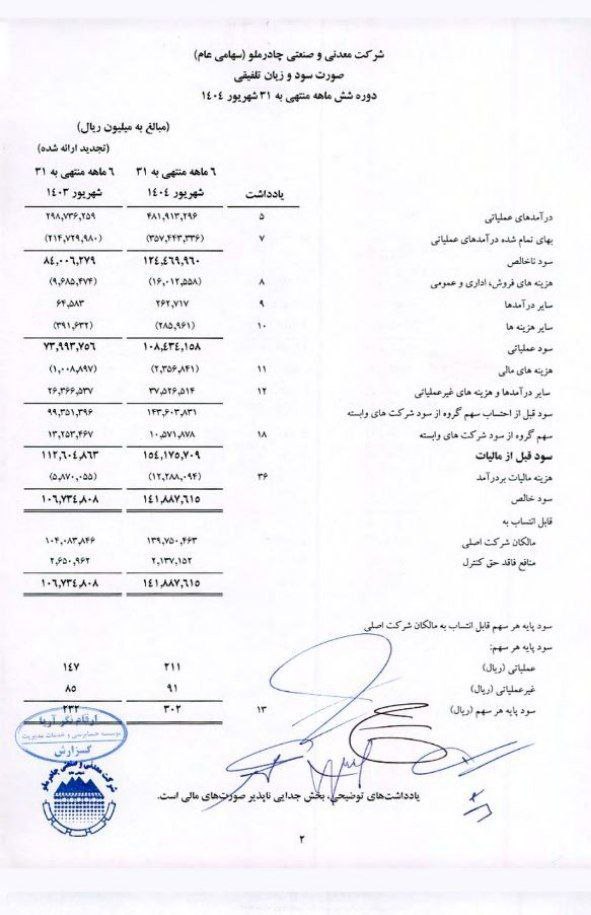 شرکت معدنی و صنعتی چادرملو (سهامی عام)
صورت سود و زیان تلفیقی
دوره شش ماهه منتهی به ۳۱ شهریور ۱۴۰۴
(مبالغ به میلیون ریال)
(تجدید ارائه شده)
یادداشت ۶ ماهه منتهی به ۳۱ شهریور ۱۴۰۴ ۶ ماهه منتهی به ۳۱ شهریور ۱۴۰۳
درآمدهای عملیاتی ۵ ۴۸۱,۹۱۳,۲۹۶ ۲۹۸,۷۳۶,۲۵۹
بهای تمام شده درآمدهای عملیاتی ۷ (۳۵۷,۴۴۳,۳۳۶) (۲۱۴,۷۲۹,۹۸۰)
سود ناخالص ۱۲٤,٤٦۹,۹٦۰ ۸٤,۰۰٦,۲۷۹
هزینه های فروش، اداری و عمومی ۸ (۱۶,۰۱۲,۵۵۸) (۹,۶۸۵,۴۷۴)
سایر درآمدها ۹ ۲۶۲,۷۱۷ ۶۴,۵۸۳
سایر هزینه ها ۱۰ (۲۸۵,۹۶۱) (۳۹۱,۶۳۲)
سود عملیاتی ۱۰۸,٤۳٤,۱۵۸ ۷۳,۹۹۳,۷۵٦
هزینه های مالی ۱۱ (۲,۳۵۶,۸۴۱) (۱,۰۰۸,۸۹۷)
سایر درآمدها و هزینه های غیرعملیاتی ۱۲ ۳۷,۵۲۶,۵۱۴ ۲۶,۳۶۶,۵۳۷
سود قبل از احتساب سهم گروه از سود شرکت های وابسته ۱۴۳,۶۰۳,۸۳۱ ۹۹,۳۵۱,۳۹۶
سهم گروه از سود شرکت های وابسته ۱۸ ۱۰,۵۷۱,۸۷۸ ۱۳,۲۵۳,۴۶۷
سود قبل از مالیات ۱۵٤,۱۷۵,۷۰۹ ۱۱۲,٦۰٤,۸٦۳
هزینه مالیات بردرآمد ۳۶ (۱۲,۲۸۸,۰۹۴) (۵,۸۷۰,۰۵۵)
سود خالص ۱٤۱,۸۸۷,٦۱۵ ۱۰٦,۷۳٤,۸۰۸
قابل انتساب به
مالکان شرکت اصلی ۱۳۹,۷۵۰,۴۶۳ ۱۰۴,۰۸۳,۸۴۶
منافع فاقد حق کنترل ۲,۱۳۷,۱۵۲ ۲,۶۵۰,۹۶۲
۱٤۱,۸۸۷,٦۱۵ ۱۰٦,۷۳٤,۸۰۸
سود پایه هر سهم قابل انتساب به مالکان شرکت اصلی
سود پایه هر سهم:
عملیاتی (ریال) ۲۱۱ ۱٤۷
غیرعملیاتی (ریال) ۹۱ ۸۵
سود پایه هر سهم (ریال) ۱۳ ۳۰۲ ۲۳۲
ارقام نگر آریا
موسسه حسابرسی و خدمات مدیریت
گزارش
شرکت معدنی و صنعتی چادرملو
یادداشت‌های توضیحی، بخش جدایی ناپذیر صورت‌های مالی است.
۲